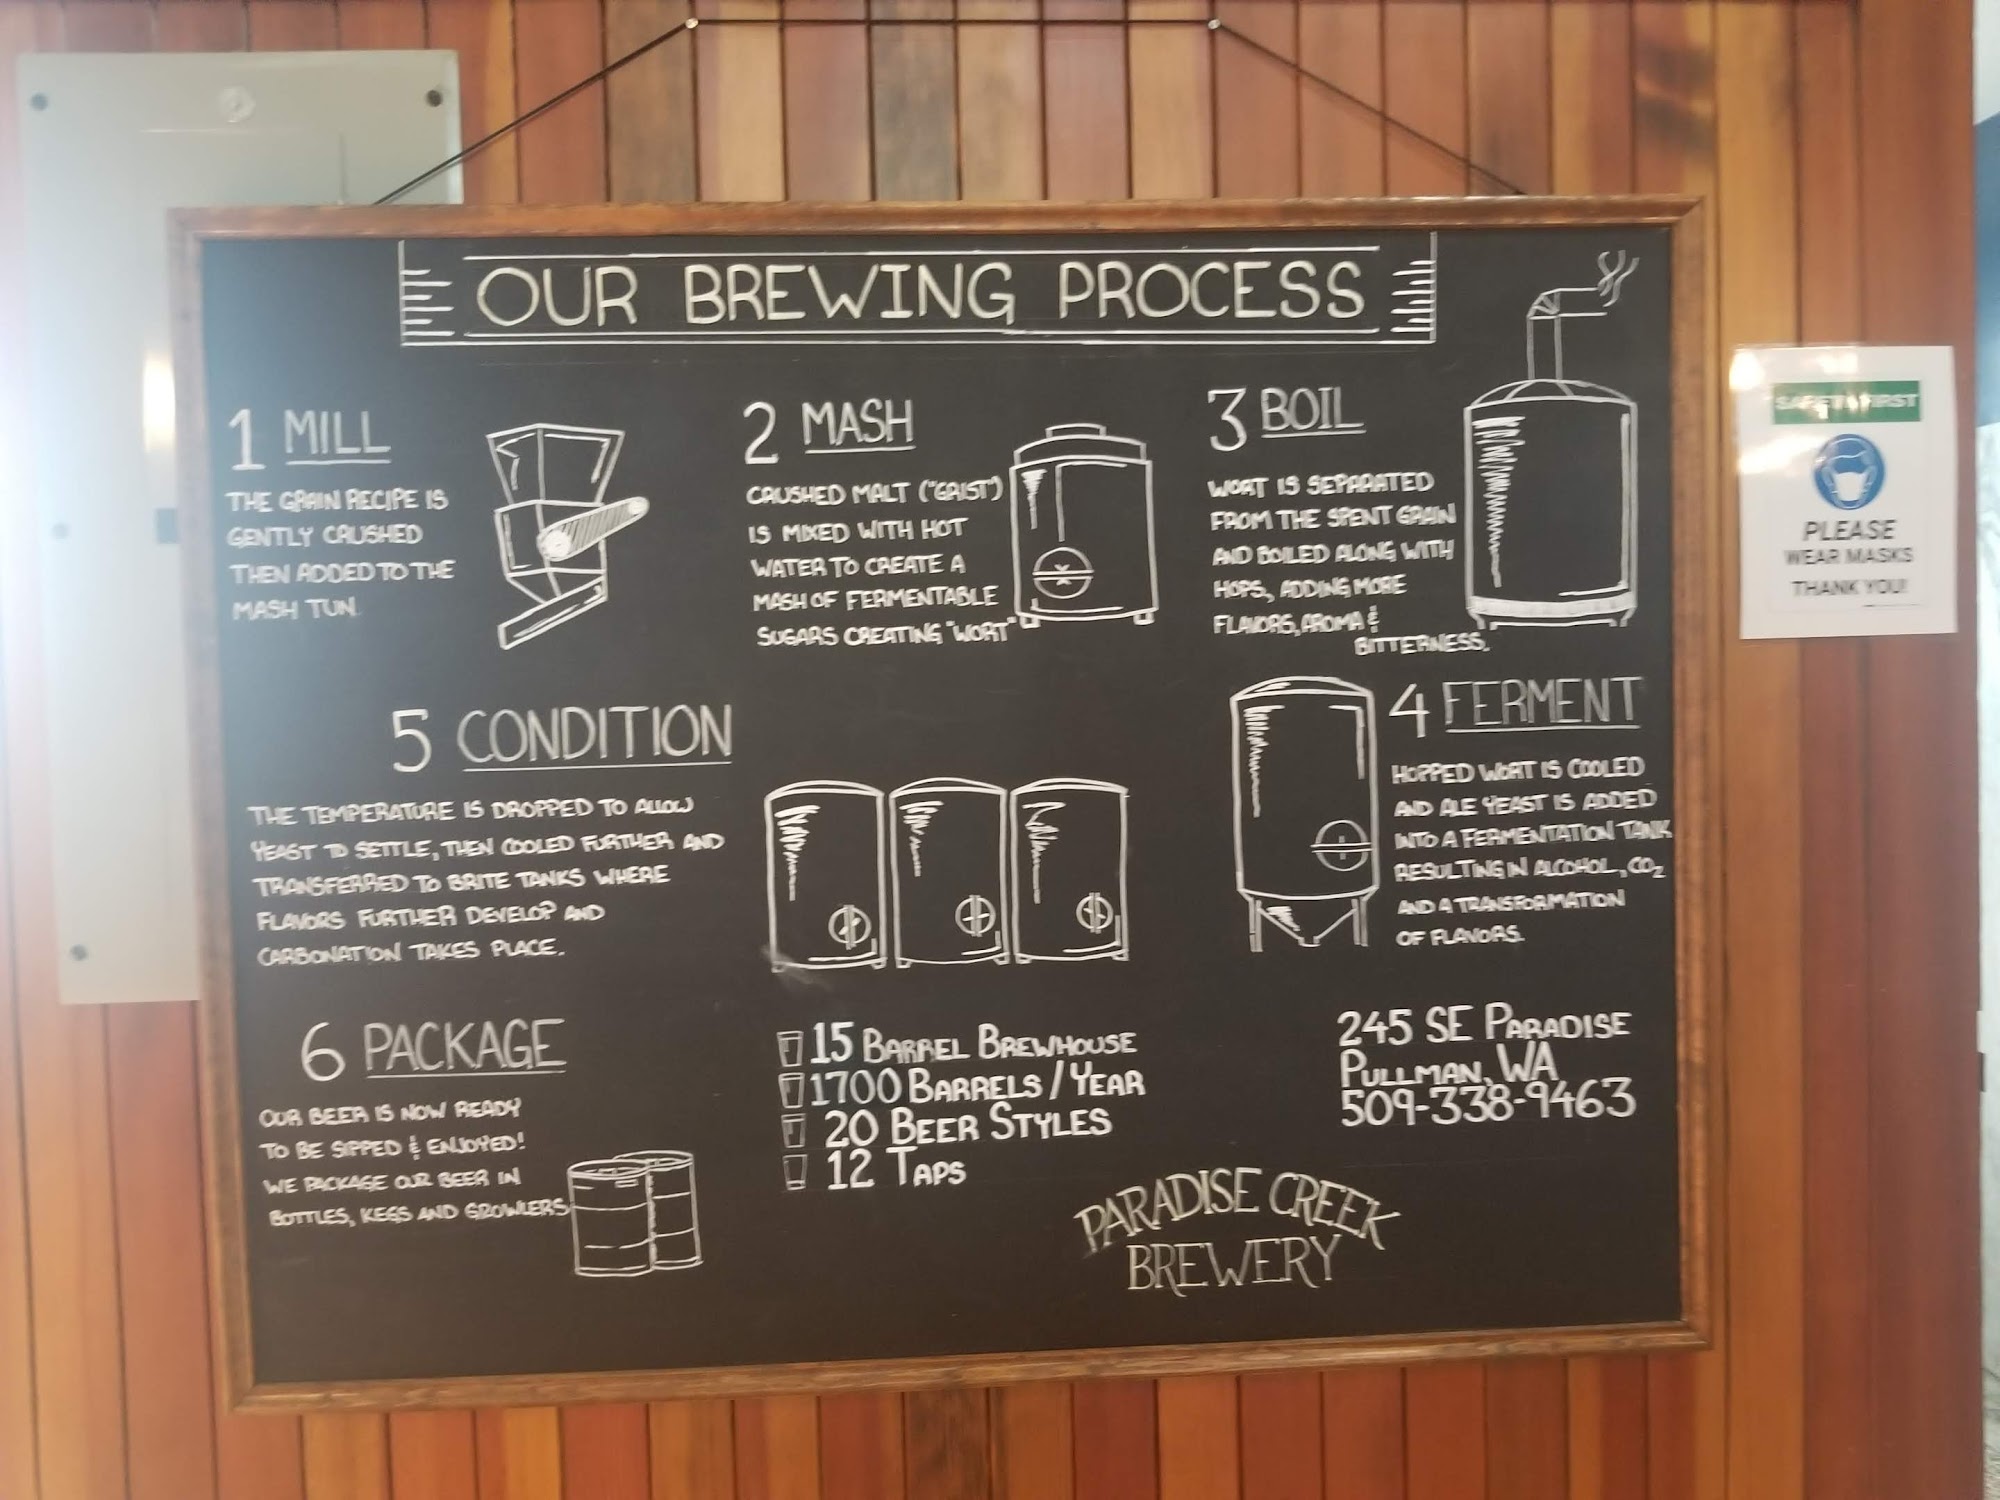 OUR BREWING PROCESS
1 MILL
THE GRAIN RECIPE IS
GENTLY CRUSHED
THEN ADDED TO THE
MASH TUN.
2 MASH
CRUSHED MALT ("GRIST")
IS MIXED WITH HOT
WATER TO CREATE A
MASH OF FERMENTABLE
SUGARS CREATING "WORT"
3 BOIL
WORT IS SEPARATED
FROM THE SPENT GRAIN
AND BOILED ALONG WITH
HOPS, ADDING MORE
FLAVORS, AROMA &
BITTERNESS.
4 FERMENT
HOPPED WORT IS COOLED
AND ALE YEAST IS ADDED
INTO A FERMENTATION TANK
RESULTING IN ALCOHOL, CO2
AND A TRANSFORMATION
OF FLAVORS.
5 CONDITION
THE TEMPERATURE IS DROPPED TO ALLOW
YEAST TO SETTLE, THEN COOLED FURTHER AND
TRANSFERRED TO BRITE TANKS WHERE
FLAVORS FURTHER DEVELOP AND
CARBONATION TAKES PLACE.
6 PACKAGE
OUR BEER IS NOW READY
TO BE SIPPED & ENJOYED!
WE PACKAGE OUR BEER IN
BOTTLES, KEGS AND GROWLERS
15 BARREL BREWHOUSE
1700 BARRELS / YEAR
20 BEER STYLES
12 TAPS
245 SE PARADISE
PULLMAN, WA
509-338-9463
PARADISE CREEK
BREWERY
SAFETY FIRST
PLEASE
WEAR MASKS
THANK YOU!